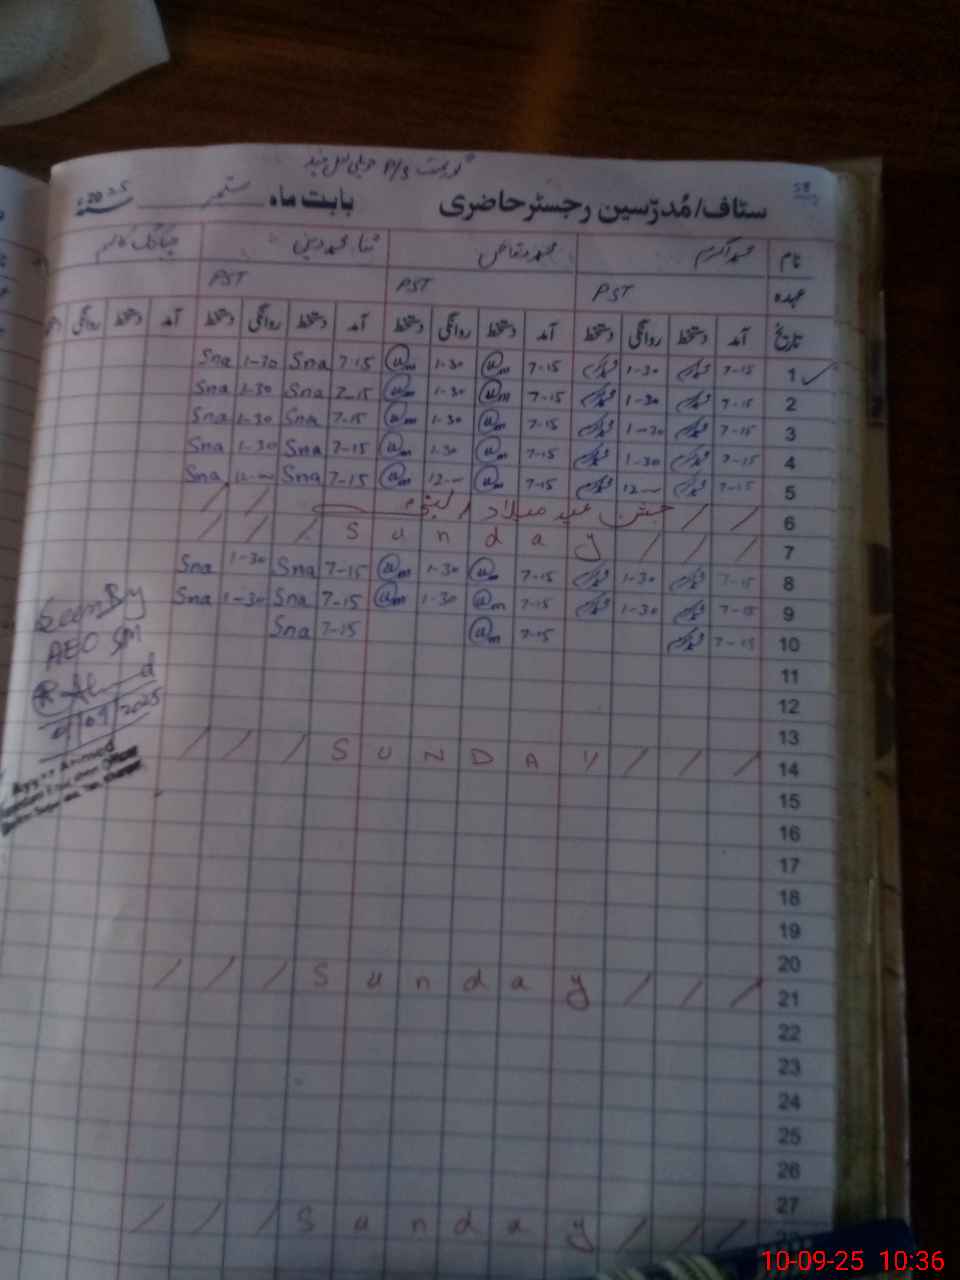 گورنمنٹ P/S
58
سٹاف/مُدرّسین رجسٹر حاضری بابت ماہ ستمبر سنہ 2025ء
نام محمد اکرم محمد وقاص ثنا محمد دین
عہدہ PST PST PST
تاریخ آمد دستخط روانگی دستخط آمد دستخط روانگی دستخط آمد دستخط روانگی دستخط آمد دستخط روانگی
1 ✓ 7-15 1-30 7-15 am 1-30 am 7-15 Sna 1-30 Sna
2 7-15 1-30 7-15 am 1-30 am 7-15 Sna 1-30 Sna
3 7-15 1-30 7-15 am 1-30 am 7-15 Sna 1-30 Sna
4 7-15 1-30 7-15 am 1-30 am 7-15 Sna 1-30 Sna
5 7-15 12- 7-15 am 12- am 7-15 Sna 12- Sna
6 / / جشن عید میلاد النبی / /
7 / / / Sunday / / /
8 7-15 1-30 7-15 am 1-30 am 7-15 Sna 1-30 Sna
9 7-15 1-30 7-15 am 1-30 am 7-15 Sna 1-30 Sna
10 7-15 7-15 am 7-15 Sna
11
12
13
14 / / / SUNDAY / / /
15
16
17
18
19
20
21 / / / Sunday / / /
22
23
24
25
26
27
/ / / Sunday / / /
Seen By
AEO
9/09/2025
10-09-25 10:36